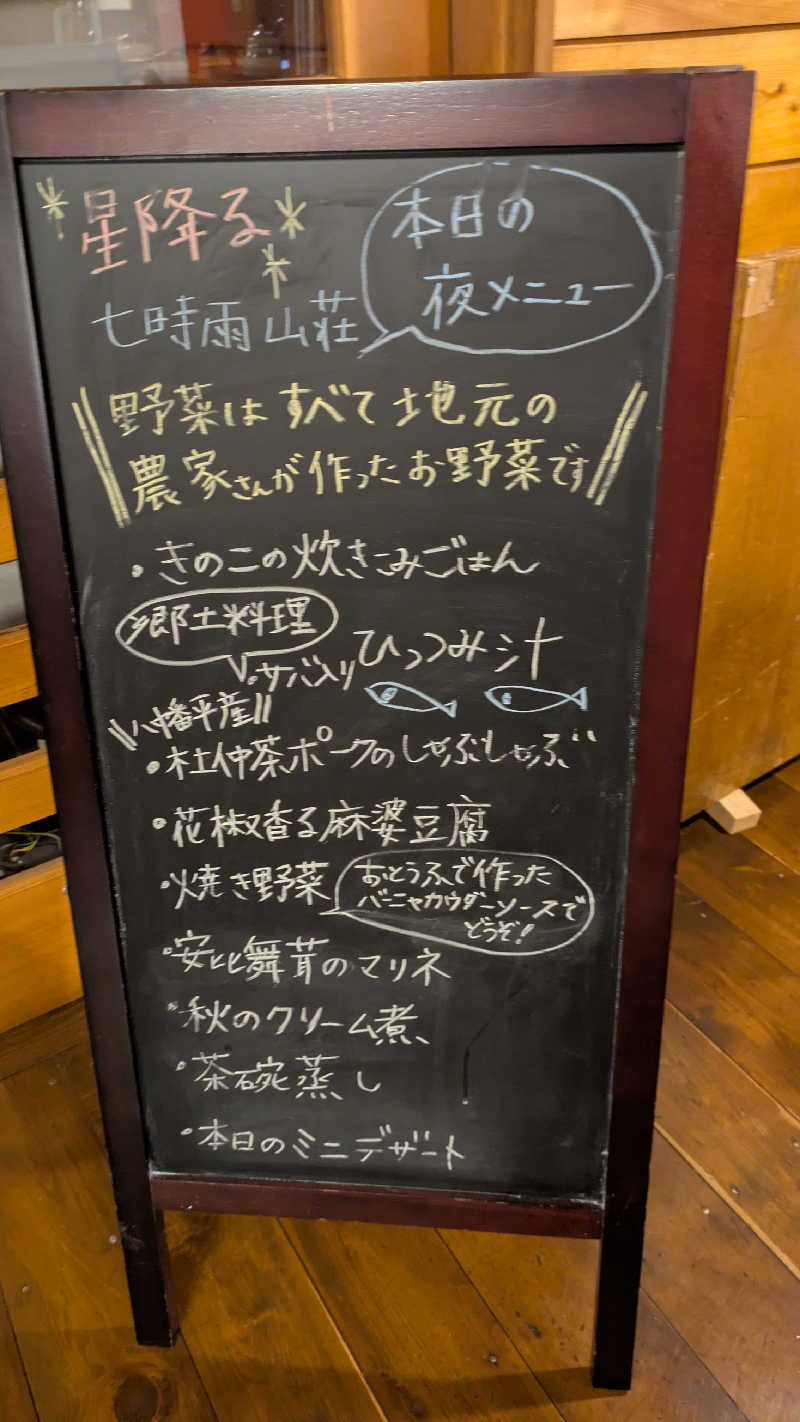 星降る
七時雨山荘
本日の
夜メニュー
野菜はすべて地元の
農家さんが作ったお野菜です
・きのこの炊きこみごはん
郷土料理
・サバ入りひっつみ汁
八幡平産
・杜仲茶ポークのしゃぶしゃぶ
・花椒香る麻婆豆腐
・焼き野菜
おとうふで作った
バーニャカウダーソースで
どうぞ!
・安比舞茸のマリネ
・秋のクリーム煮
・茶碗蒸し
・本日のミニデザート